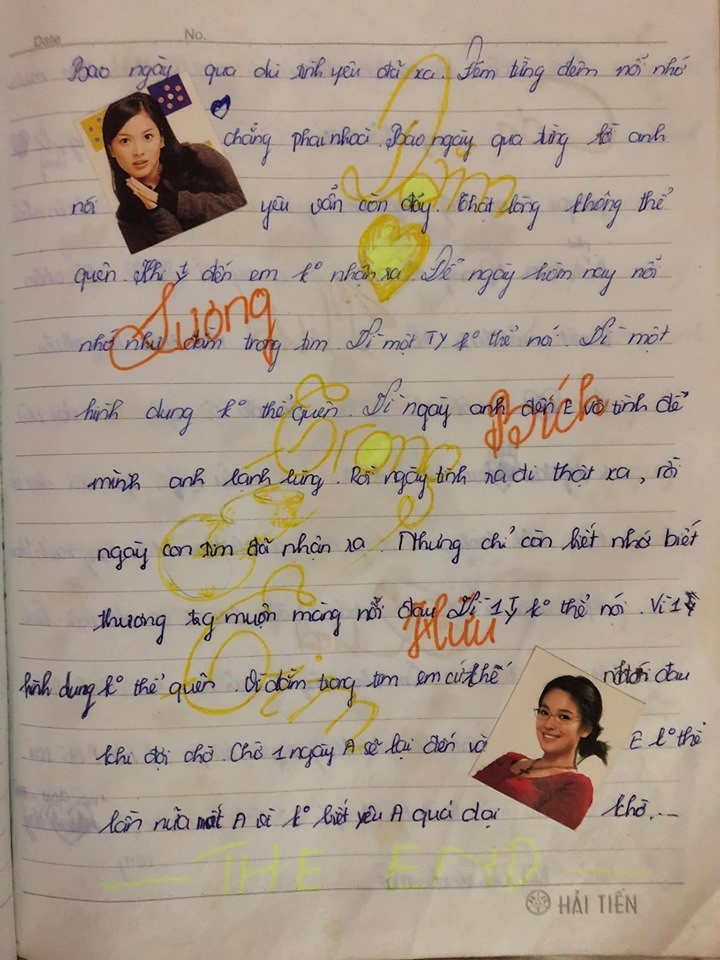 Date No.
Bao ngày qua dù tình yêu đã xa. Đêm từng đêm nỗi nhớ
chẳng phai nhoà. Bao ngày qua từng lời anh
nói yêu vẫn còn đây. Thật lòng không thể
quên. Khi ty đến em kº nhận ra. Để ngày hôm nay nỗi
nhớ như dằm trong tim. Vì một TY kº thể nói. Vì một
hình dung kº thể quên. Vì ngày anh đến E vô tình để
mình anh lạnh lùng. Rồi ngày tình ra đi thật xa, rồi
ngày con tim đã nhận ra. Nhưng chỉ còn biết nhớ biết
thương tŋg muộn màng nỗi đau. Vì 1 Ty kº thể nói. Vì 1
hình dung kº thể quên. Vì dằm trong tim em cứ thế nhói đau
khi đợi chờ. Chờ 1 ngày A sẽ lại đến và E kº thể
lần nữa mất A vì kº biết yêu A quá dại khờ...
Dằm
Trong
Tim
Lương
Bích
Hữu
THE END
HẢI TIẾN